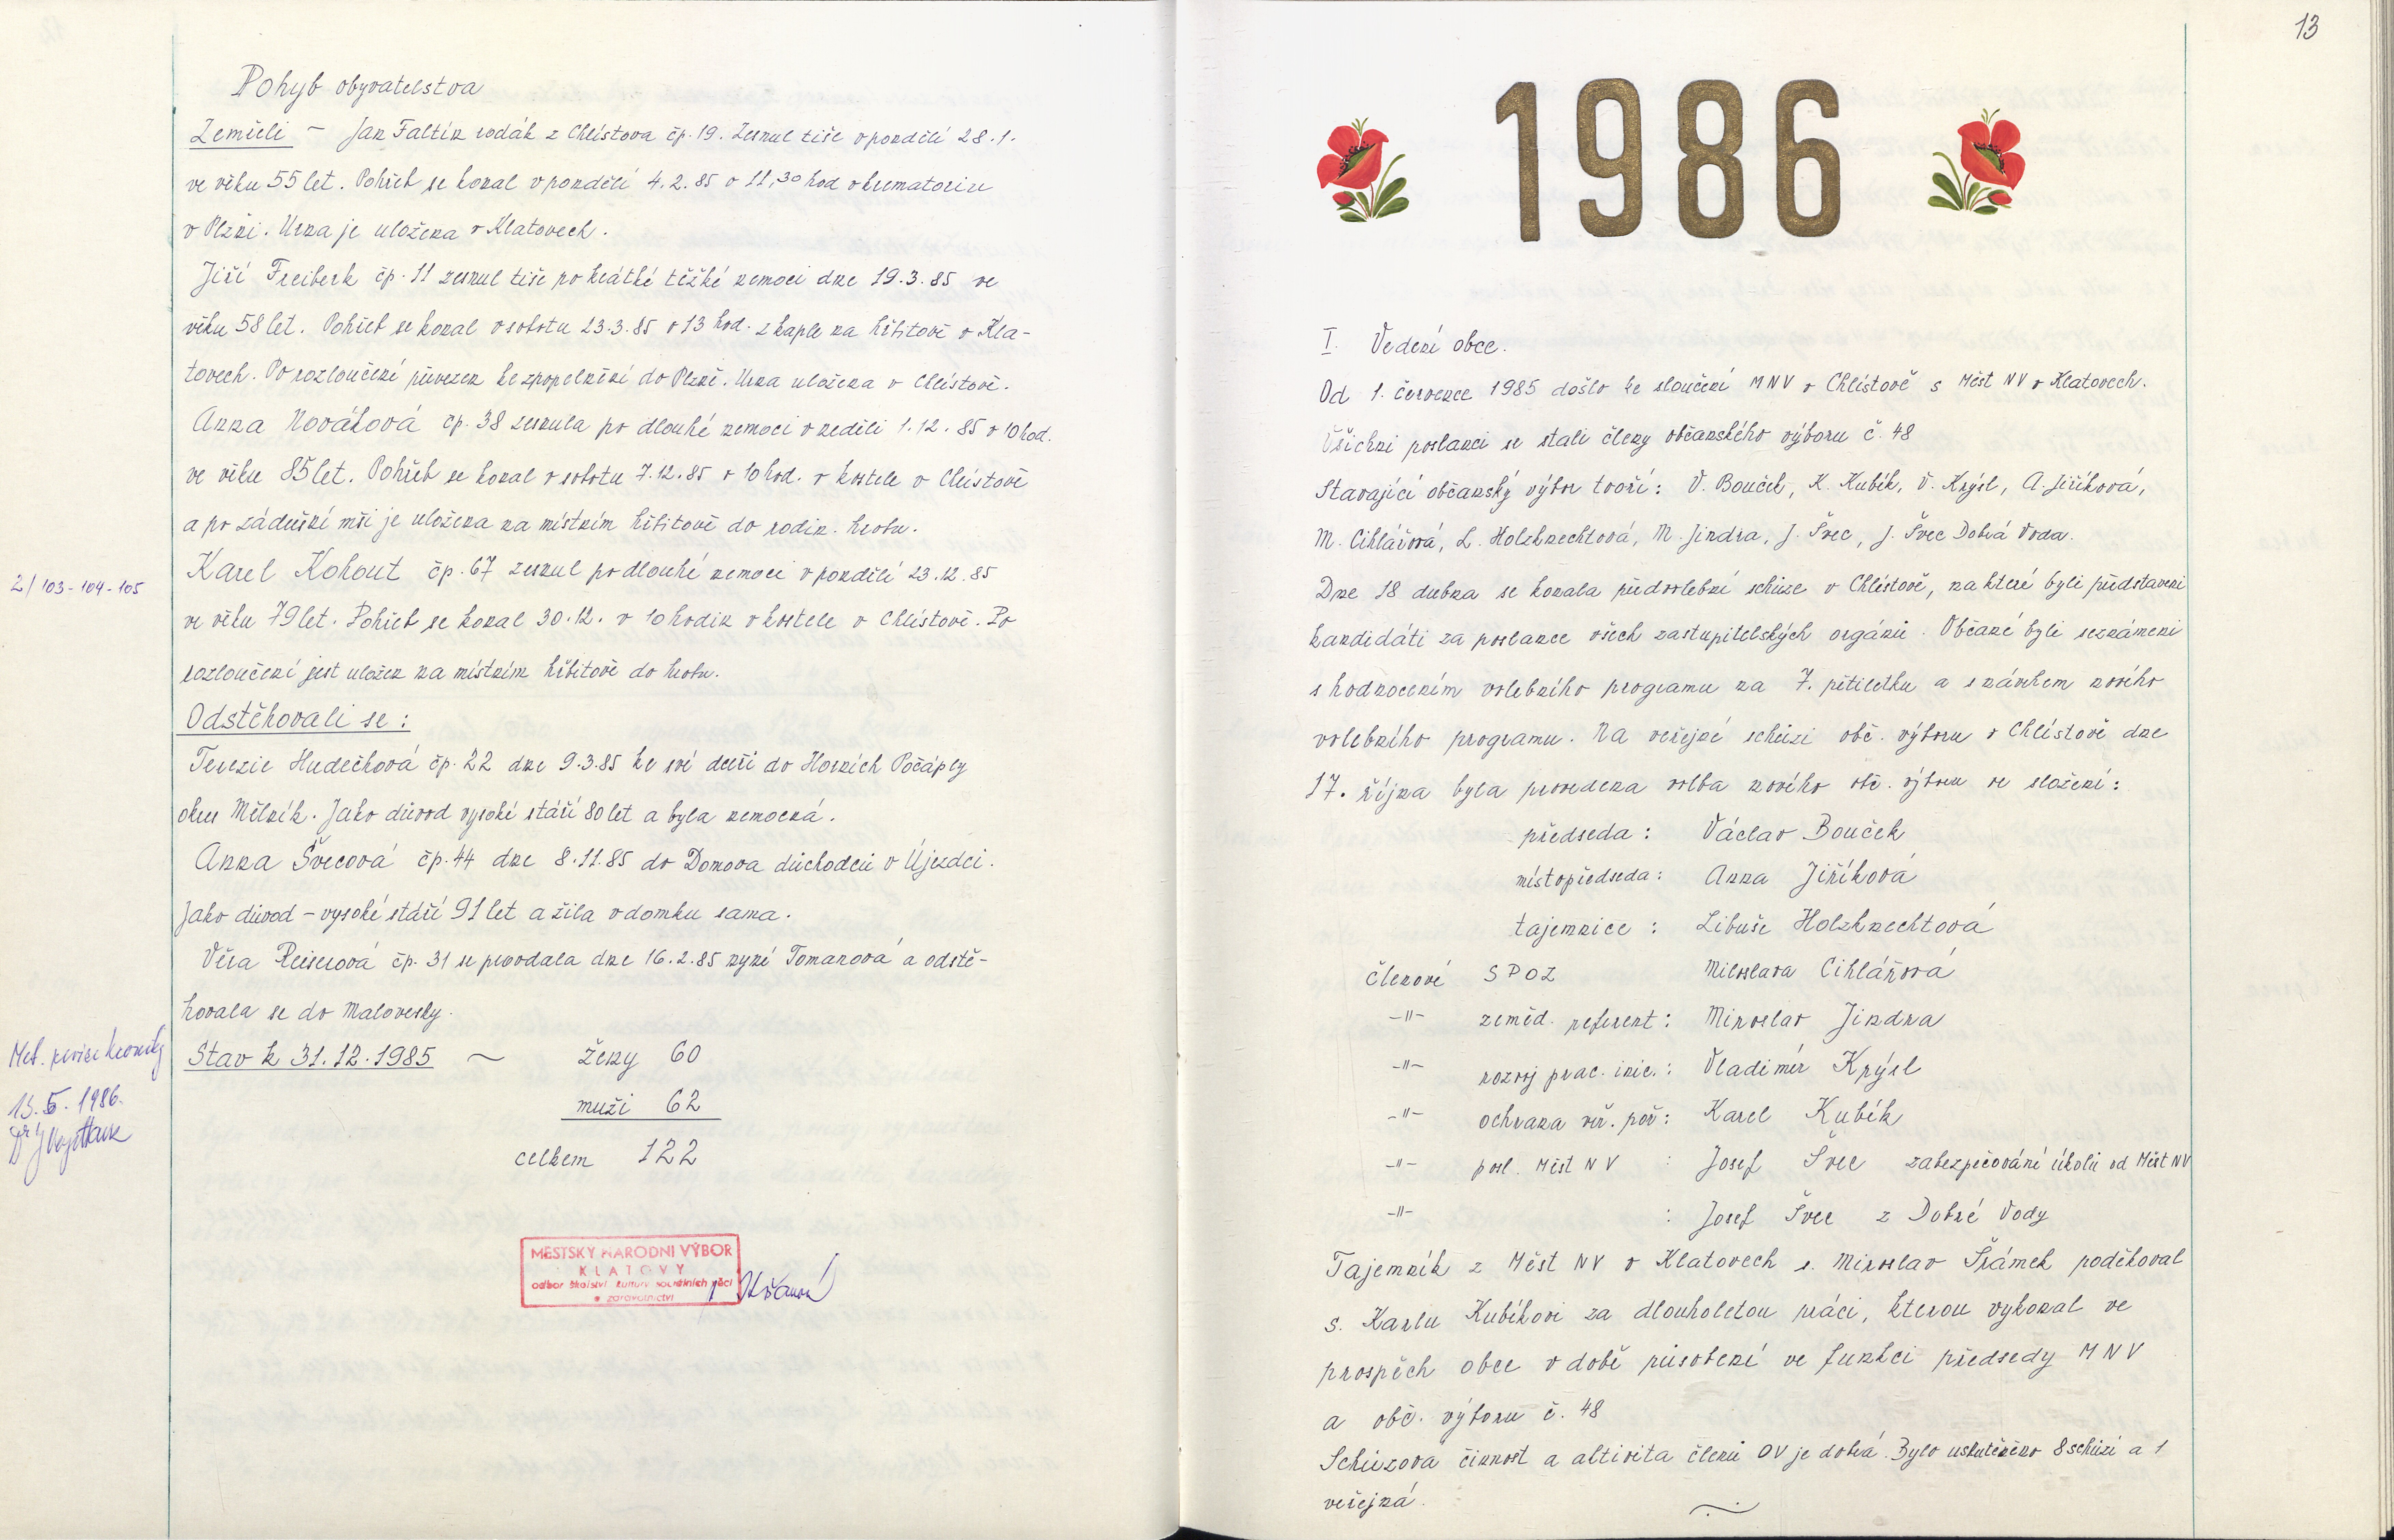 Pohyb obyvatelstva
Zemřeli – Jan Faltín rodák z Chlístova čp. 19. Zesnul tiše v pondělí 28.1.
ve věku 55 let. Pohřeb se konal v pondělí 4.2.85 v 11,30 hod v krematoriu
v Plzni. Urna je uložena v Klatovech.
Jiří Freiberk čp. 11 zesnul tiše po krátké těžké nemoci dne 19.3.85 ve
věku 58 let. Pohřeb se konal v sobotu 23.3.85 v 13 hod. z kaple na hřbitově v Kla-
tovech. Po rozloučení převezen ke zpopelnění do Plzně. Urna uložena v Chlístově.
Anna Nováková čp. 38 zesnula po dlouhé nemoci v neděli 1.12.85 v 10 hod.
ve věku 85 let. Pohřeb se konal v sobotu 7.12.85 v 10 hod. v kostele v Chlístově
a po zádušní mši je uložena na místním hřbitově do rodin. hrobu.
2/103-104-105
Karel Kohout čp. 67 zesnul po dlouhé nemoci v pondělí 23.12.85
ve věku 79 let. Pohřeb se konal 30.12. v 10 hodin v kostele v Chlístově. Po
rozloučení jest uložen na místním hřbitově do hrobu.
Odstěhovali se:
Terezie Hudečková čp. 22 dne 9.3.85 ke své dceři do Horních Počáply
okres Mělník. Jako důvod vysoké stáří 80 let a byla nemocná.
Anna Švecová čp. 44 dne 8.11.85 do Domova důchodců v Újezdci.
Jako důvod – vysoké stáří 91 let a žila v domku sama.
Věra Reiserová čp. 31 se provdala dne 16.2.85 nyní Tomanová a odstě-
hovala se do Malovesky.
Met. revize kroniky
13.5.1986.
Stav k 31.12.1985 ~ ženy 60
muži 62
celkem 122
MĚSTSKÝ NÁRODNÍ VÝBOR
KLATOVY
odbor školství kultury sociálních věcí
a zdravotnictví
13
1986
I. Vedení obce.
Od 1. července 1985 došlo ke sloučení MNV v Chlístově s Měst NV v Klatovech.
Všichni poslanci se stali členy občanského výboru č. 48
Stávající občanský výbor tvoří: V. Bouček, K. Kubík, V. Krýsl, A. Jiříková,
M. Cihlářová, L. Holzknechtová, M. Jindra, J. Švec, J. Švec Dobrá Voda.
Dne 18 dubna se konala předvolební schůze v Chlístově, na které byli představeni
kandidáti za poslance všech zastupitelských orgánů. Občané byli seznámeni
s hodnocením volebního programu na 7. pětiletku a s návrhem nového
volebního programu. Na veřejné schůzi obč. výboru v Chlístově dne
17. října byla provedena volba nového obč. výboru ve složení:
předseda: Václav Bouček
místopředseda: Anna Jiříková
tajemnice: Libuše Holzknechtová
členové SPOZ Miloslava Cihlářová
-"- zeměd. referent: Miroslav Jindra
-"- rozvoj prac. inic.: Vladimír Krýsl
-"- ochrana veř. poř: Karel Kubík
-"- posl. Měst NV : Josef Švec zabezpečování úkolů od Měst NV
-"- : Josef Švec z Dobré Vody
Tajemník z Měst NV v Klatovech s. Miroslav Šrámek poděkoval
s. Karlu Kubíkovi za dlouholetou práci, kterou vykonal ve
prospěch obce v době působení ve funkci předsedy MNV
a obč. výboru č. 48
Schůzová činnost a aktivita členů OV je dobrá. Bylo uskutečněno 8 schůzí a 1
veřejná.